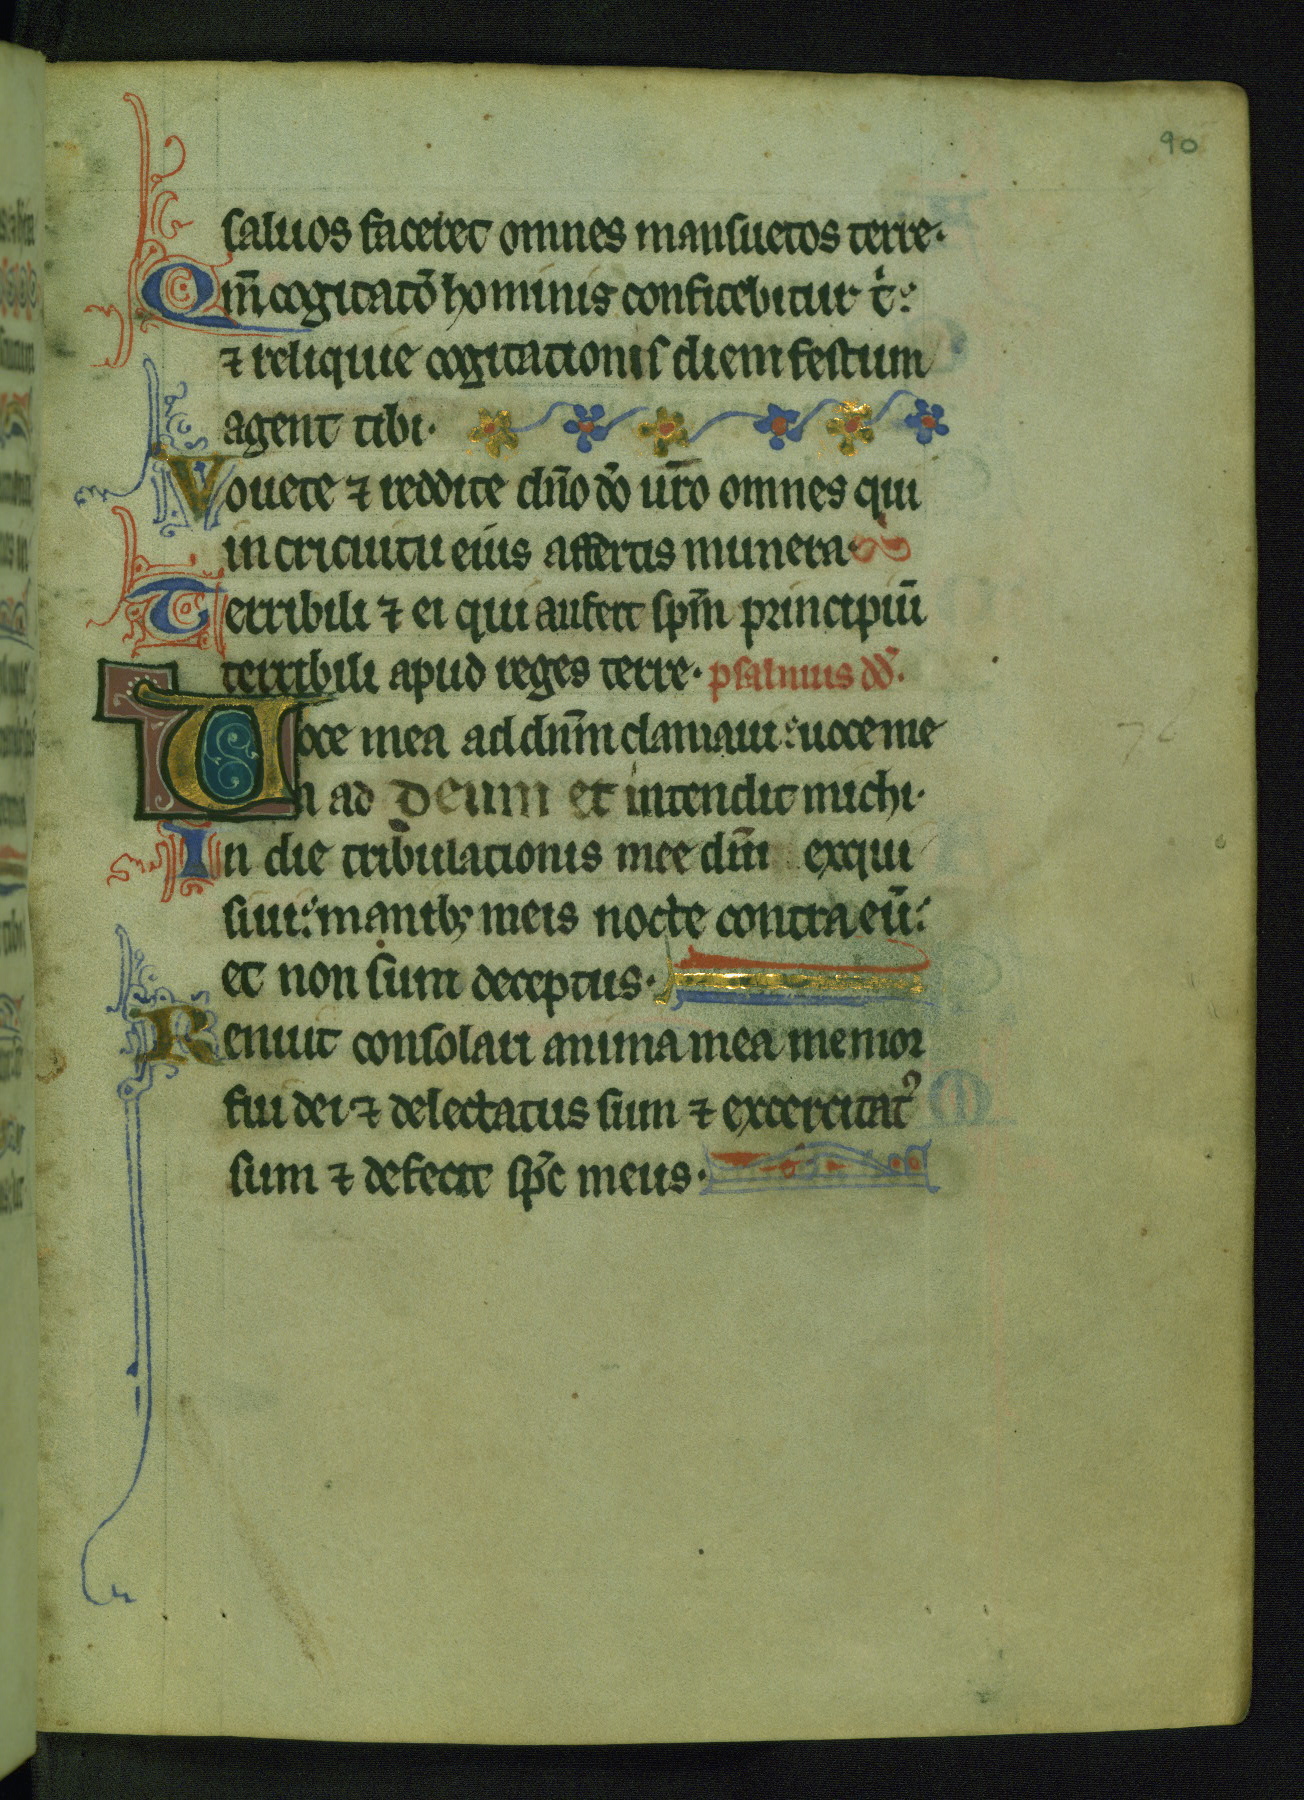 90
saluos faceret omnes mansuetos terre.
Qm̄ cogitatō hominis confitebitur t̄:
⁊ reliquie cogitationis diem festum
agent tibi.
Vouete ⁊ reddite dn̄o dō ur̄o omnes qui
in circuitu eius affertis munera.
Terribili ⁊ ei qui aufert spm̄ principiū
terribili apud reges terre. psalmus dd̄.
Uoce mea ad dnm̄ clamaui: uoce me
a ad deum et intendit michi.
In die tribulationis mee dm̄ exqui
siui: manibꝫ meis nocte contra eū:
et non sum deceptus.
Renuit consolari anima mea memor
fui dei ⁊ delectatus sum ⁊ excercitatꝰ
sum ⁊ defecit sp̄c meus.